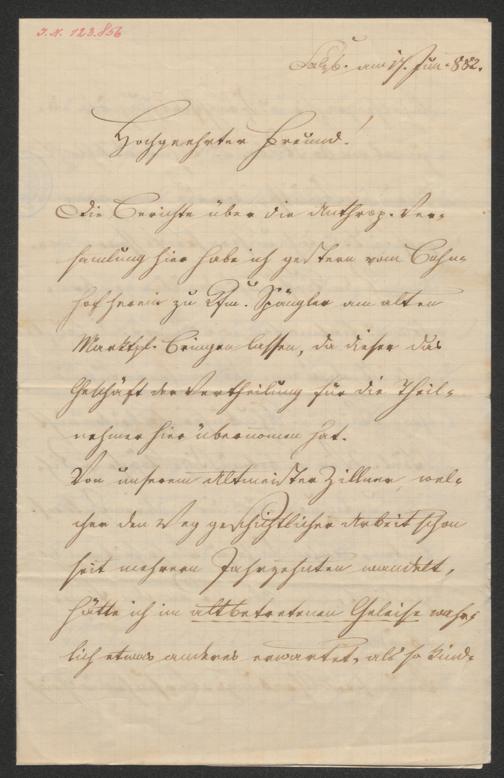 J.N. 123.856
Salzb. am 17. Jun. 882.
Hochgeehrter Freund!
Die Berichte über die Anthrop. Ver-
samlung hier habe ich gestern vom Bahn-
hof herein zu Kfm. Spängler am alten
Marktpl. bringen lassen, da dieser das
Geschäft der Vertheilung für die Theil-
nehmer hier übernomen hat.
Von unserem Altmeister Zillner, wel-
cher den Weg geschichtlicher Arbeit schon
seit mehrern Jahrzehnten wandelt,
hätte ich im altbetretenen Geleise wahr-
lich etwas anderes erwartet, als so kind-